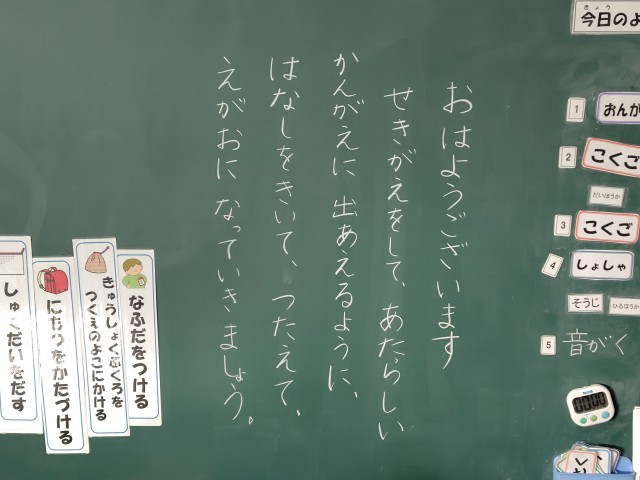 おはようございます
せきがえをして、あたらしい
かんがえに出あえるように、
はなしをきいて、つたえて、
えがおになっていきましょう。
きょう
今日のよ
1
おんが
2
こくご
だいほうか
3
こくご
4
しょしゃ
そうじ
ひるほうか
5
音がく
00:00
なふだをつける
きゅうしょくぶくろを
つくえのよこにかける
にもつをかたづける
しゅくだいをだす